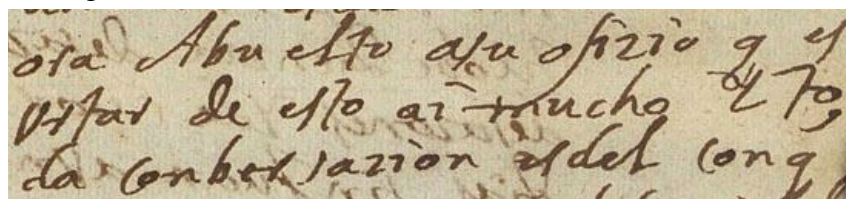 ora Abuelto asu ofizio q es
urtar de esto ai mucho y to
da conbersazion es del con q